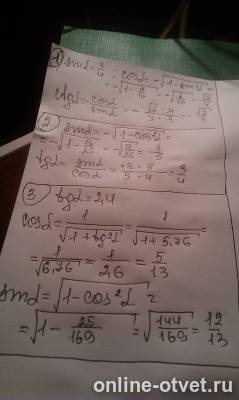 ① sin α = 3/4 ; cos α = -√(1-sin²α) =
= -√(1-9/16) = -√(7/16) = -√7/4
ctg α = cos α / sin α = -√7/4 · 4/3 = -√7/3
② sin α = -√(1-cos²α) =
= -√(1-16/25) = -√(9/25) = -3/5
tg α = sin α / cos α = +3·5 / 5·4 = 3/4
③ tg α = 2,4
cos α = 1/√(1+tg²α) = 1/√(1+5,76) =
= 1/√6,76 = 1/26 = 5/13
sin α = √(1-cos²α) =
= √(1-25/169) = √(144/169) = 12/13
online-otvet.ru